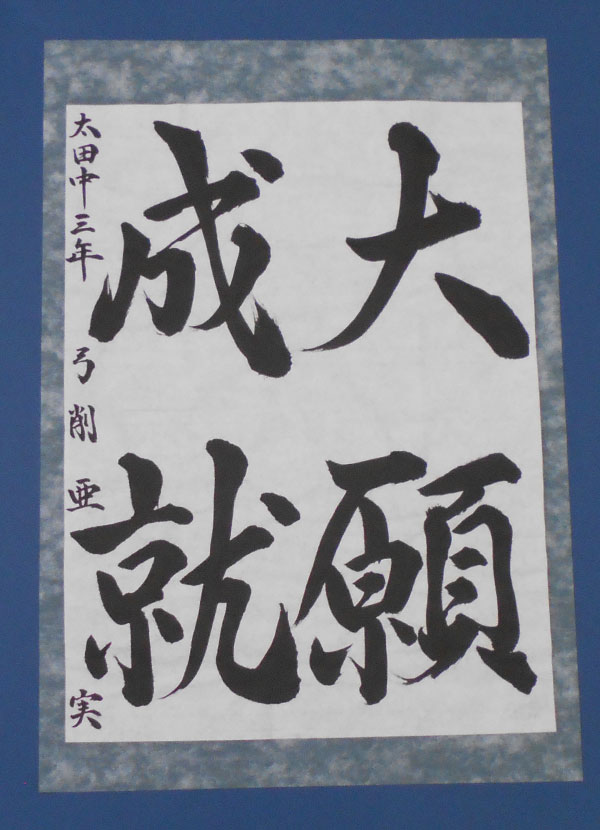 大願
成就
太田中三年 弓削亜実